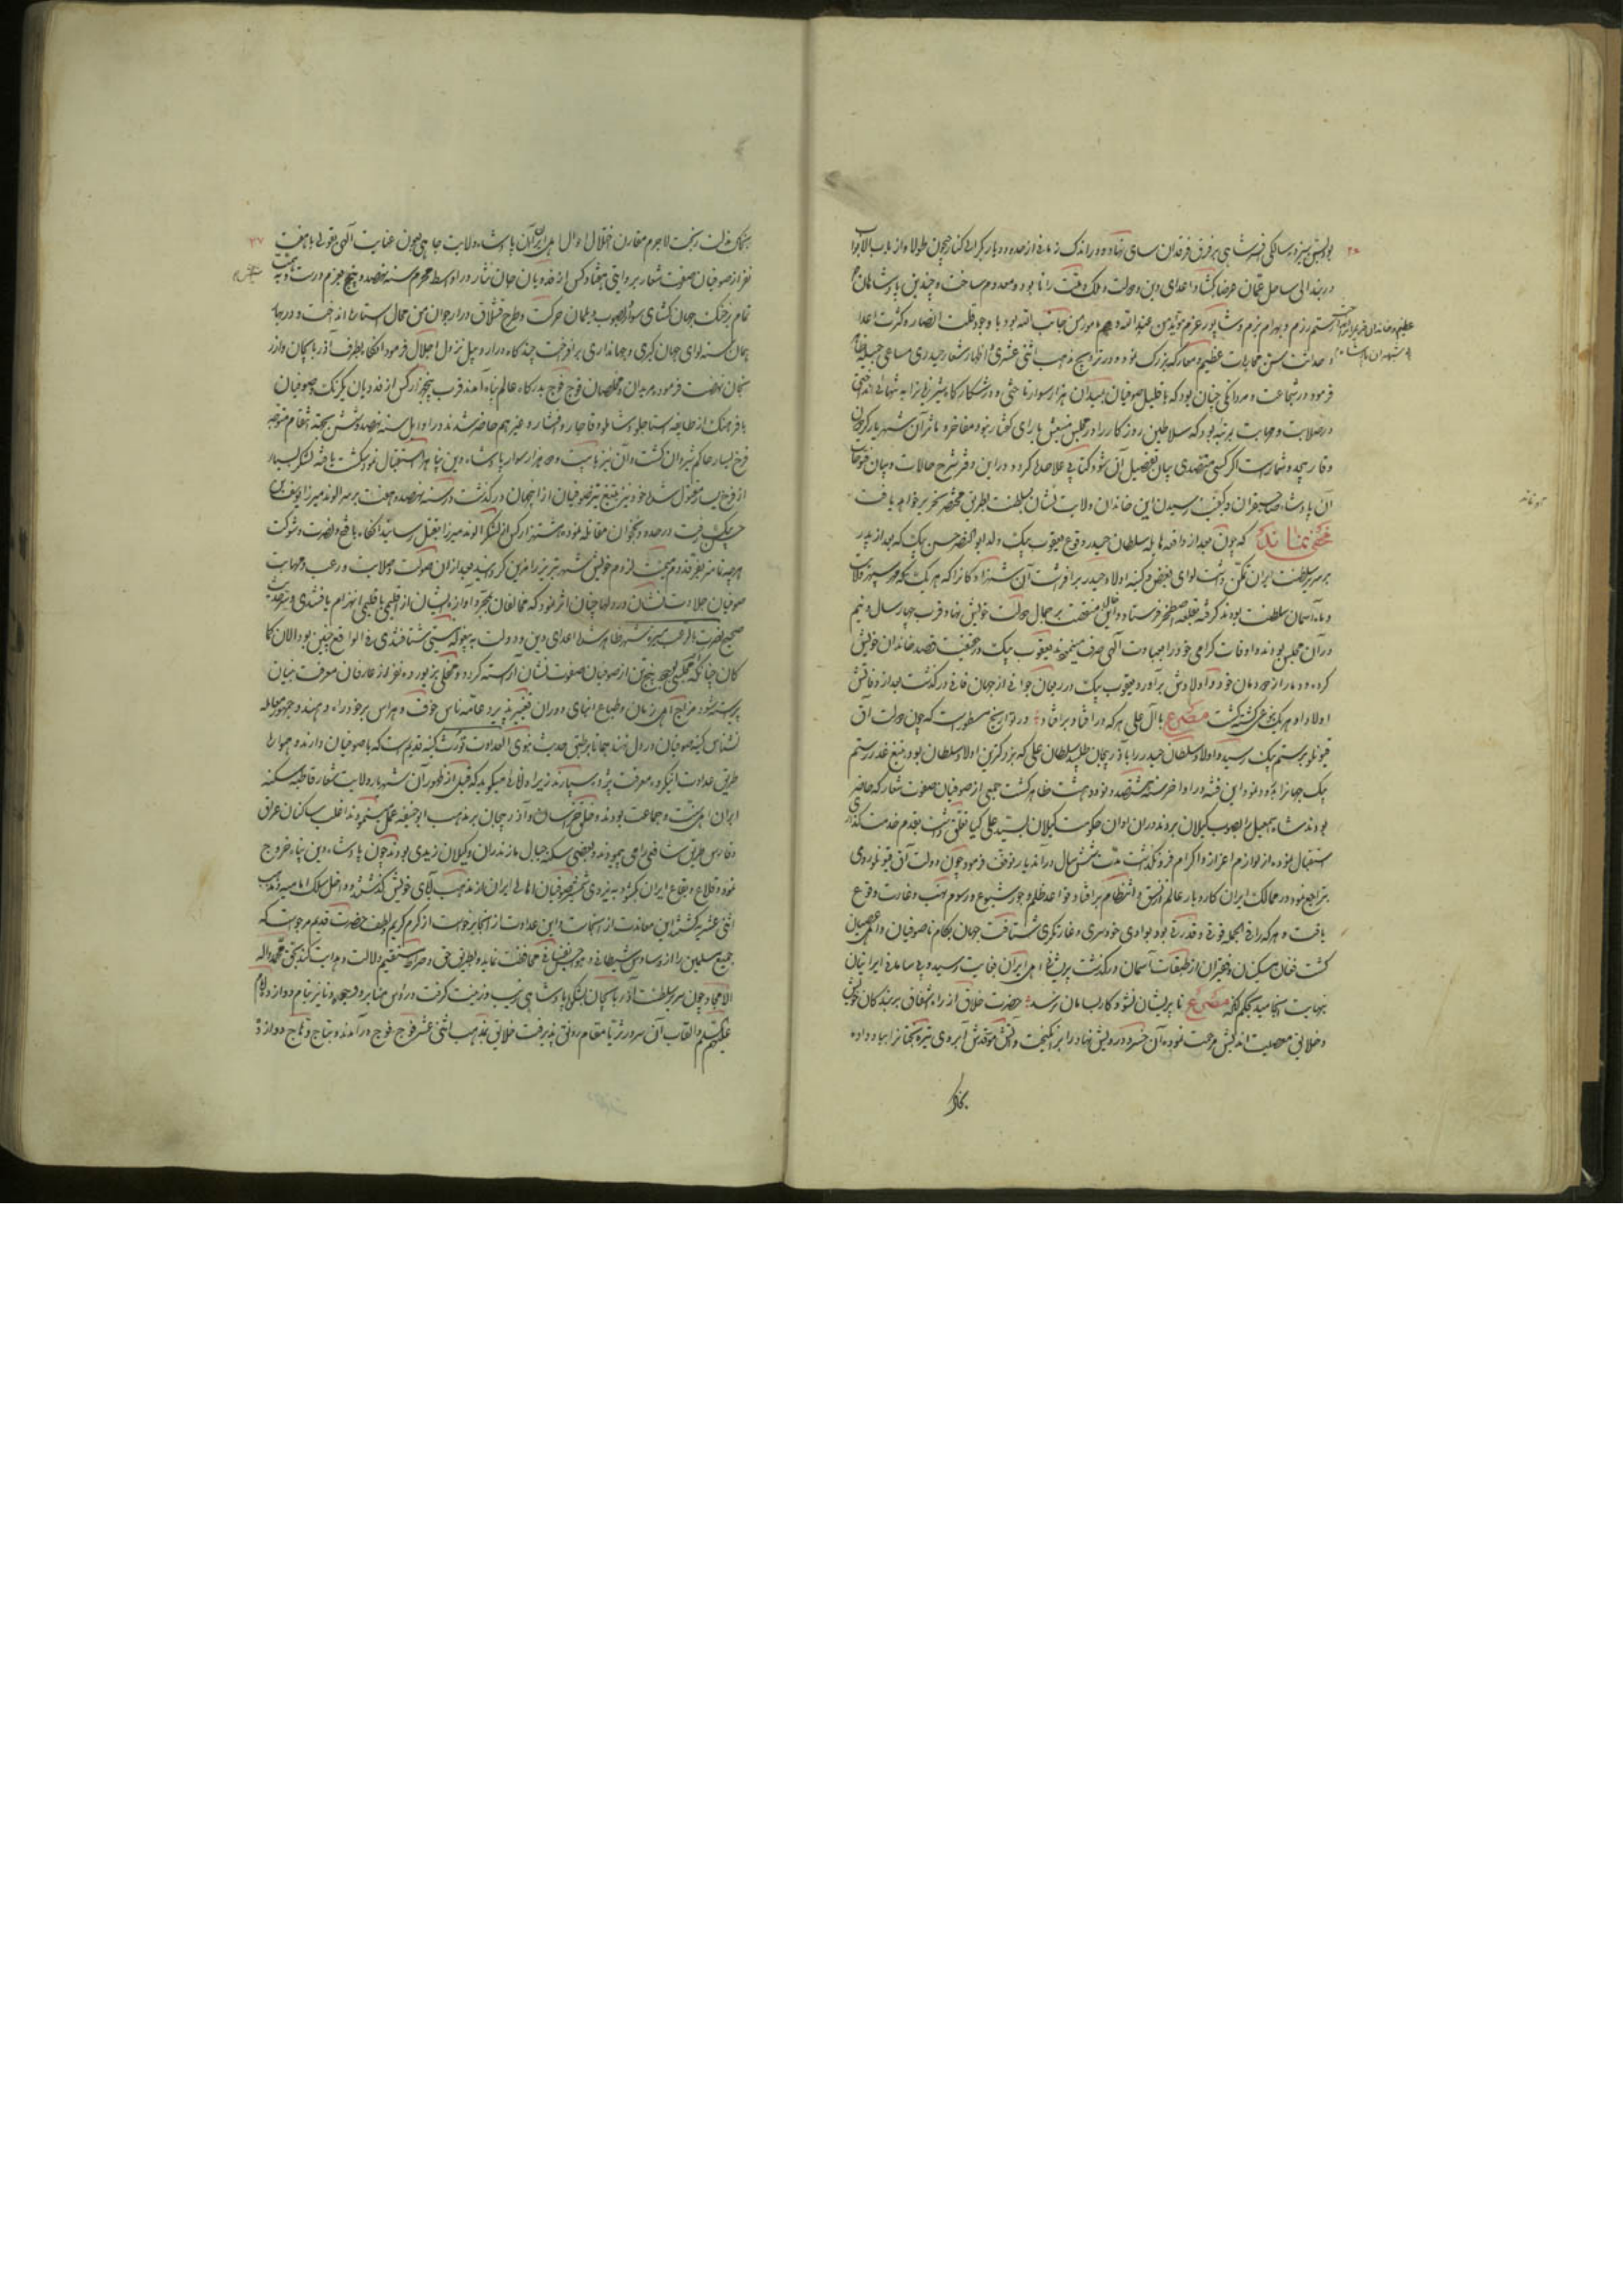 بود بسن سیزده سالگی افسر شاهی بر فرق فرقدان سای نهاده و در اندک زمانی از حدود دیار بکر الی کنار جیحون طولا و از باب الابواب
دربند الی ساحل عمان عرضا بکشاد و اعدای دین و دولت و ملک و ملت را نابود و معدوم ساخت و چندین پادشاهان
رستم رزم و بهرام بزم و شاپور عزم مؤید من عند الله و مامور من جانب الله بود با وجود قلت انصار و کثرت اعدا
و حداثت سن محاربات عظیم و معارک بزرک نموده و در ترویج مذهب اثنی عشری و اظهار شعار حیدری مساعی جمیله
فرمود در شجاعت و مردانکی چنان بود که با قلیل صوفیان بمیدان هزار سوار تاختی و در شکار کاه شیر
در صلابت و مهابت بمرتبه بود که سلاطین روزکار را در مجلس بهشتش یارای کفتار نبود مفاخر و مآثر آن شهریار
اکر کسی متصدی بیان تفصیل آن شود کتابی علاحده کردد در این دفتر شرح حالات و بیان فتوحات
آن پادشاه صاحبقران و کیفیت رسیدن این خاندان ولایت نشان بسلطنت بطریق مختصر تحریر خواهد یافت
مخفی نماند که چون بعد از واقعه هایله سلطان حیدر و فوت یعقوب بیک ولد ابو النصر حسن بیک که بعد از پدر
بر سریر سلطنت ایران تمکن داشت لوای بغض و کینه اولاد حیدر برافراشت آن شهزادکان را که هر یک مهر سپهر ولایت
و ماه آسمان سلطنت بودند کرفته بقلعه اصطخر فرستاد و منقصت بر جمال دولت خویش نهاد قرب چهار سال و نیم
در آن محبس بودند و اوقات کرامی خود را بعبادت الهی صرف مینمودند یعقوب بیک در حقیقت قصد خاندان خویش
کرده دمار از دودمان خود و اولادش برآورد یعقوب بیک در ریعان جوانی از جهان فانی درکذشت بعد از وفاتش
اولاد او هر یک بنوعی کشته کشت مصرع با آل علی هر که در افتاد بر افتاد در تواریخ مسطور است که چون دولت آق
قیونلو برستم بیک رسید اولاد سلطان حیدر را باذربیجان طلبید سلطان علی که بزرکترین اولاد سلطان بود بتیغ غدر رستم
بیک جهان را بدرود نمود این فتنه در اواخر سنه هشتصد و نود و هشت ظاهر کشت جمعی از صوفیان صفوت شعار که حاضر
بودند شاه اسمعیل را بصوب کیلان بردند در ان اوان حکومت کیلان بسید علی کیا تعلق داشت بقدم خدمت کذاری
استقبال نموده از لوازم اعزاز و اکرام فرو نکذاشت مدت شش سال در آن دیار توقف فرمود چون دولت آق قیونلو روی
بتراجع نمود در ممالک ایران کاروبار عالم از نسق و انتظام برافتاد و قواعد ظلم و جور شیوع و رسوم نهب و غارت وقوع
یافت و هر که را فی الجمله قوتی و قدرتی بود بوادی خودسری و غارتکری شتافت جهان بکام ناصوفیان و اهل عصیان
کشت فغان مسکینان و فقیران از طبقات آسمان درکذشت پریشانی اهل ایران بغایت رسید و بی سامانی ایرانیان
بنهایت انجامید بحکم آنکه مصرع تا پریشان نشود کار بسامان نرسد حضرت خلاق از راه اشفاق بر بندکان خویش
و خلایق معصیت اندیش مرحمت نموده آن خسرو درویش نهاد را برانکیخت و آتش آبروی تیره بختان را بباد داده
هنکامه فلان ریخت لاجرم مقارن اختلال احوال اهل ایران آن پادشاه ولایت جاه بعون عنایت الهی بقولی با هفت
نفر از صوفیان صفوت شعار بروایتی هفتاد کس از فدویان جان نثار در اواسط محرم سنه نهصد و پنج بعزم درست و
تمام برخنک جهان کشای سوار و بصوب دیلمان حرکت و طرح قشلاق در ارجوان من محال استارا انداخت و در
همان سنه لوای جهان کیری و جهانداری برافراخت چندکاه در اردبیل نزول اجلال فرمود آنکاه بطرف آذربایجان و از
نهضت فرمود مریدان و مخلصان فوج فوج بدرکاه عالم پناه آمدند قرب پنجهزار کس از فدویان یکرنک و صوفیان
با فرهنک از طایفه استاجلو و شاملو و قاجار و افشار و غیرهم حاضر شدند در اوایل سنه نهصد و شش بجهة انتقام متوجه
فرخ یسار حاکم شیروان کشت و آن نیز با بیست و هزار سوار پادشاه دین پناه را استقبال نمود شکست یافته لشکر بسیار
از فرخ یسار مقتول شده خود نیز بتیغ تیز صوفیان از این جهان درکذشت در سنه نهصد و هفت بر سر الوند میرزا
رفت در حدود نخجوان مقاتله نموده هشت هزار کس از لشکر الوند میرزا بقتل رسانید آنکاه با فتح و نصرت و شوکت
هر چه تمامتر بفر قدوم میمنت لزوم خویش شهر تبریز را مزین کردانید بعد از ان صولت و صلابت و رعب و مهابت
صوفیان جلادت نشان در دلها چنان اثر نمود که مخالفان بمجرد آوازه ایشان از اقلیمی باقلیمی انهزام یافتندی و
صحیح نصرت بالرعب مسیره شهر ظاهر شده اعدای دین و دولت به بیغوله نیستی شتافتندی فی الواقع چنین بود الان کما
کان چنانکه مجلسی بوجود پنج تن از صوفیان صفوت نشان آراسته کردد و محفلی بزیور ده نفر از عارفان معرفت بنیان
پیراسته شود مزاج اهل زمان و طباع ابنای دوران تغییر پذیرد و عامه ناس خوف و هراس بر خود راه دهند و جمهور
نشناس کینه صوفیان در دل نهند همانا بر طبق حدیث نبوی العداوت تورث کینه قدیم است که با صوفیان دارند و همواره
طریق عداوت اهل معرفت سپارند زیرا که راقم میکوید که قبل از ظهور آن شهریار ولایت شعار قاطبه سکنه
ایران اهل سنت و جماعت بودند و خلق خراسان و آذربیجان بر مذهب ابو حنیفه عمل مینمودند اغلب ساکنان عراق
و فارس طریق شافعی راهی میپیمودند و بعضی سکنه جبال مازندران و کیلان زیدی بودند چون پادشاه دین پناه خروج
نموده قلاع و بقاع ایران بکشود بنیروی شمشیر صوفیان اهالی ایران از مذهب آبای خویش کذشته و داخل سلک امامیه و مذهب
اثنی عشریه کشتند این معاندت از آنجاست و این عداوت از آنجا برخواست از کرم کریم و لطف حضرت قدیم مرجوست که
جمیع مسلمین را از وساوس شیطانی و هواجس نفسانی محافظت نماید و بطریق حق و صراط مستقیم دلالت و هدایت کند بحق محمد و اله
الامجاد چون سریر سلطنت آذربایجان بشکوه پادشاهی زیب و زینت کرفت و رؤس منابر و وجوه دنانیر بنام دوازده امام
علیهم السلم و القاب آن سرور ثریا مقام رونق پذیرفت خلایق بمذهب اثنی عشر فوج فوج درآمدند و بتاج وهاج دوازده